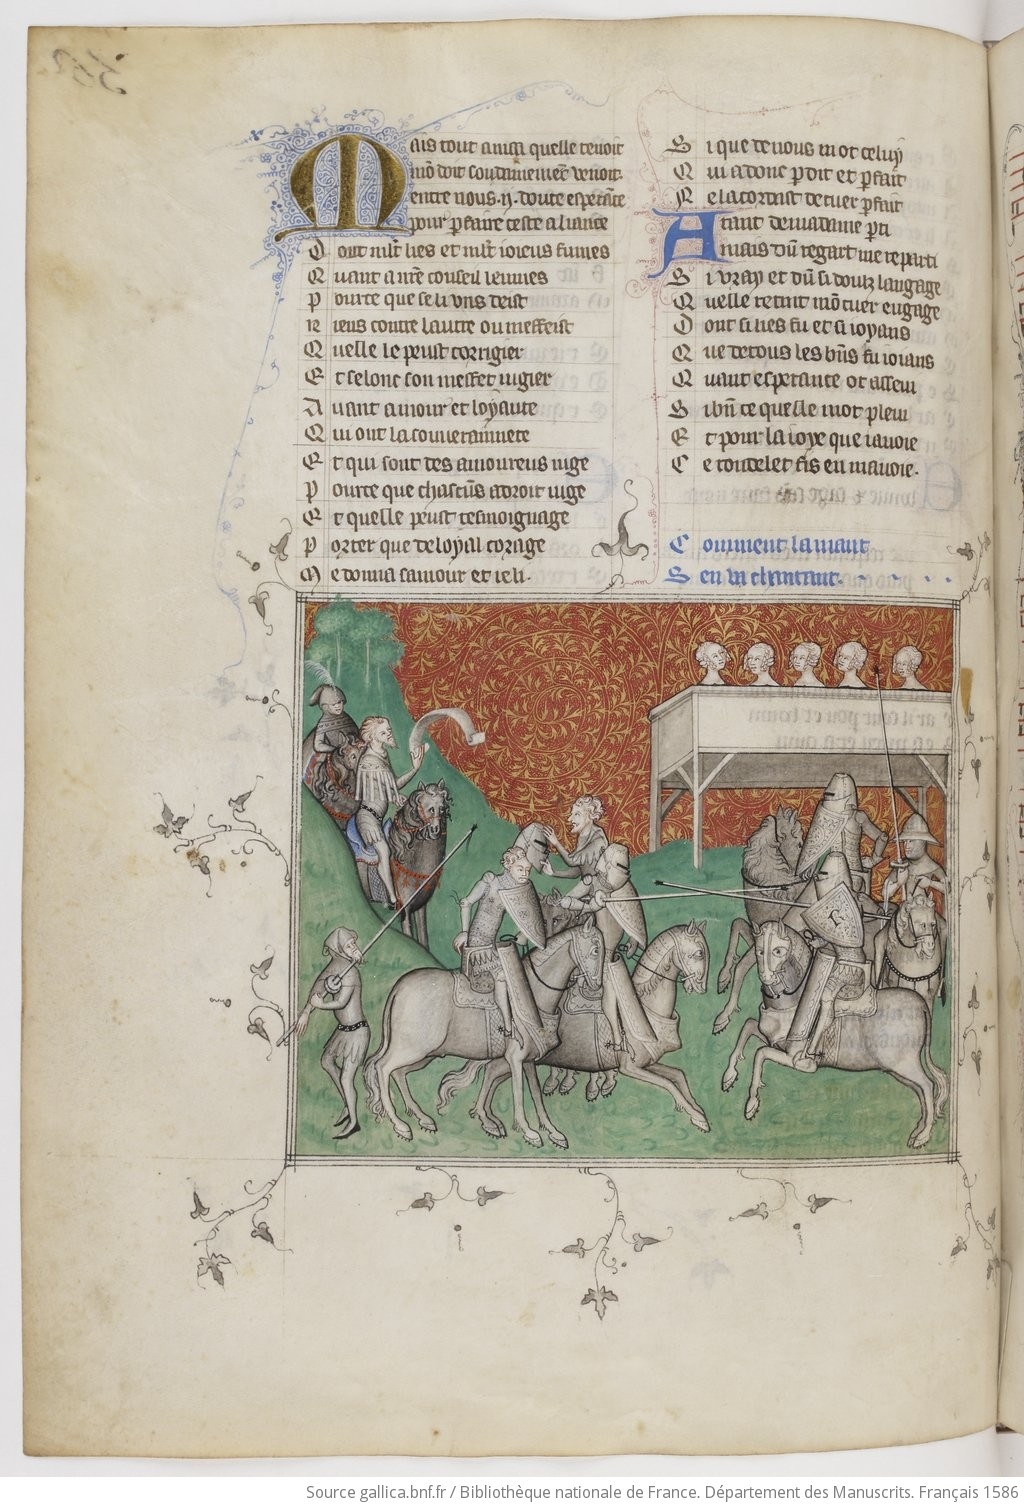 Mais tout ainsi quelle tenoit
mō doit soudainement venoit.
entre nous .ij. douce esperāce
pour pfaire ceste aliance
Dont mlt lies et mlt ioieus fumes
Quant a nre conseil leumes
Pource que se li vns deist
Riens contre lautre ou meffeist
Quelle le peust corrigier
Et selonc son meffet iugier
Auant amour et loyaute
Qui ont la souuerainnete
Et qui sont des amoureus iuge
Pource que chascūs adroit iuge
Et quelle peust tesmoignage
Porter que de loyal corage
Me donna samour et ie li.
Si que de nous mot celuy
Qui adonc p dit et p fait
Ne lacordast de cuer pfait
Atant de madame pti
Mais dū regart me reparti
Si vray et dū si doulz langage
Quelle retint mō cuer en gage
Dont si lies fu et si ioyans
Que de tous les bn̄s fu ioians
Quant esperance ot asseui
Si bn̄ ce quelle mot pleui
Et pour la ioye que iauoie
Ce rondelet fis en mauoie.
Comment lamant
Sen va chantant.
R
Source gallica.bnf.fr / Bibliothèque nationale de France. Département des Manuscrits. Français 1586